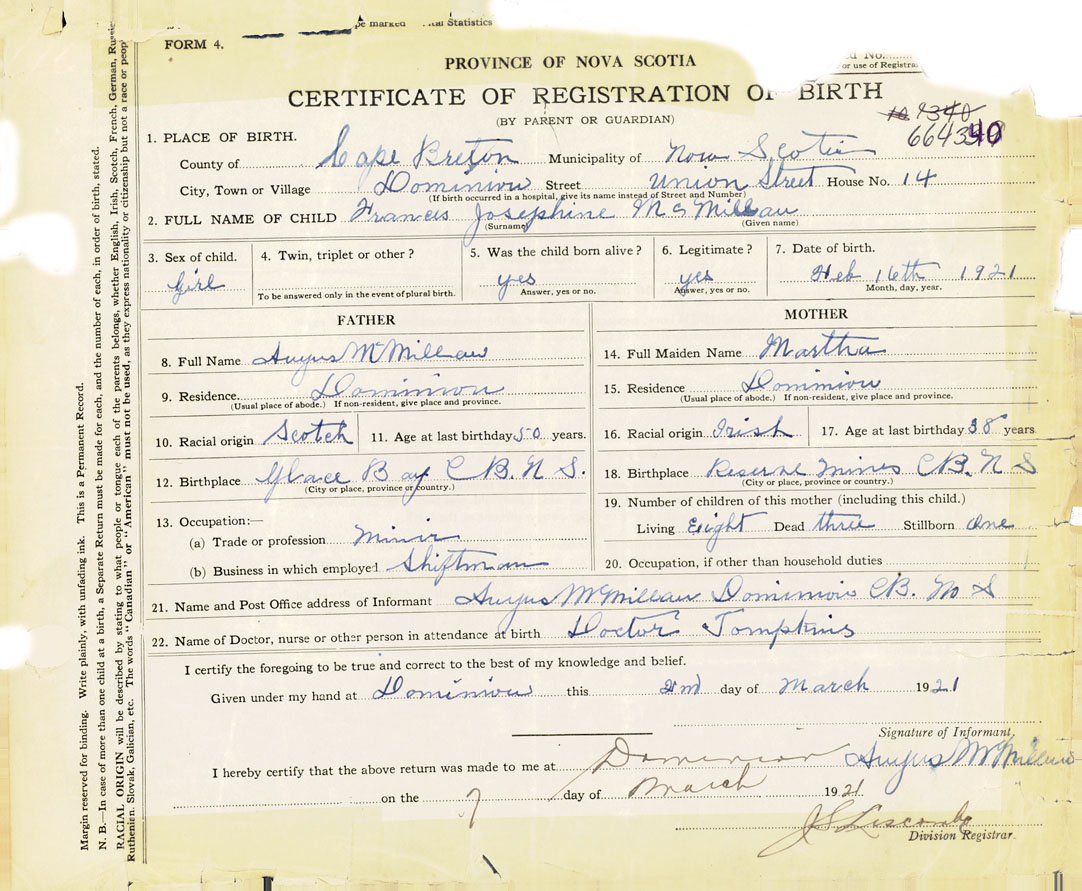 be marked Statistics
FORM 4.
No.
or use of Registrar
PROVINCE OF NOVA SCOTIA
CERTIFICATE OF REGISTRATION OF BIRTH
(BY PARENT OR GUARDIAN)
10 9340
664340
1. PLACE OF BIRTH.
County of Cape Breton Municipality of Nova Scotia
City, Town or Village Dominion Street Union Street House No. 14
(If birth occurred in a hospital, give its name instead of Street and Number)
2. FULL NAME OF CHILD Frances Josephine McMillan
(Surname) (Given name)
3. Sex of child. Girl
4. Twin, triplet or other?
To be answered only in the event of plural birth.
5. Was the child born alive? yes
Answer, yes or no.
6. Legitimate? yes
Answer, yes or no.
7. Date of birth.
Feb 16th 1921
Month, day, year.
FATHER
8. Full Name Angus McMillan
9. Residence. Dominion
(Usual place of abode.) If non-resident, give place and province.
10. Racial origin Scotch 11. Age at last birthday 50 years.
12. Birthplace Glace Bay C B. N S.
(City or place, province or country.)
13. Occupation:—
(a) Trade or profession Minir
(b) Business in which employed Shiftman
MOTHER
14. Full Maiden Name Martha
15. Residence Dominion
(Usual place of abode.) If non-resident, give place and province.
16. Racial origin Irish 17. Age at last birthday 38 years
18. Birthplace Reserve Mines CB. N S
(City or place, province or country.)
19. Number of children of this mother (including this child.)
Living Eight Dead three Stillborn One
20. Occupation, if other than household duties
21. Name and Post Office address of Informant Angus McMillan Dominion CB. N S
22. Name of Doctor, nurse or other person in attendance at birth Doctor Tompkins
I certify the foregoing to be true and correct to the best of my knowledge and belief.
Given under my hand at Dominion this 2nd day of March 1921
Signature of Informant,
Angus McMillan
I hereby certify that the above return was made to me at Dominion
on the 7 day of March 1921
J S Liscomb
Division Registrar.
Margin reserved for binding. Write plainly, with unfading ink. This is a Permanent Record.
N. B.—In case of more than one child at a birth, a Separate Return must be made for each, and the number of each, in order of birth, stated.
RACIAL ORIGIN will be described by stating to what people or tongue each of the parents belongs, whether English, Irish, Scotch, French, German, Russian
Ruthenien, Slovak, Galician, etc. The words "Canadian" or "American" must not be used, as they express nationality or citizenship but not a race or people